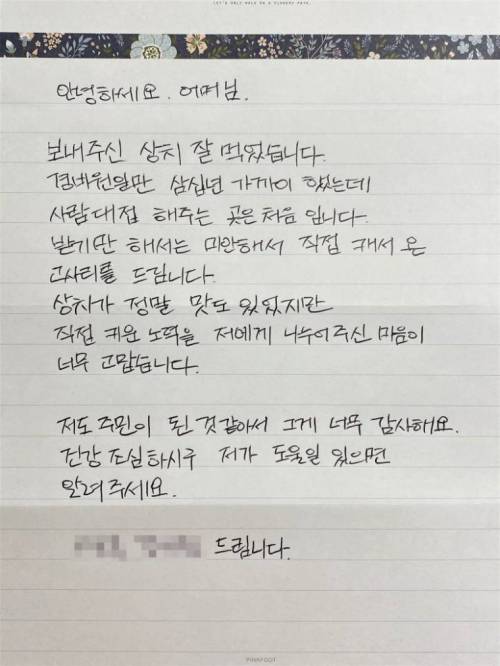 LET'S ONLY WALK ON A FLOWERY PATH.
안녕하세요. 어머님.
보내주신 상치 잘 먹었습니다.
경비원일만 삼십년 가까이 했는데
사람대접 해주는 곳은 처음 입니다.
받기만 해서는 미안해서 직접 캐서 온
고사리를 드립니다.
상차가 정말 맛도 있었지만
직접 키운 노력을 저에게 나누어 주신 마음이
너무 고맙습니다.
저도 주민이 된 것 같아서 그게 너무 감사해요.
건강 조심하시구 저가 도울일 있으면
알려주세요.
드림니다.
PINKFOOT